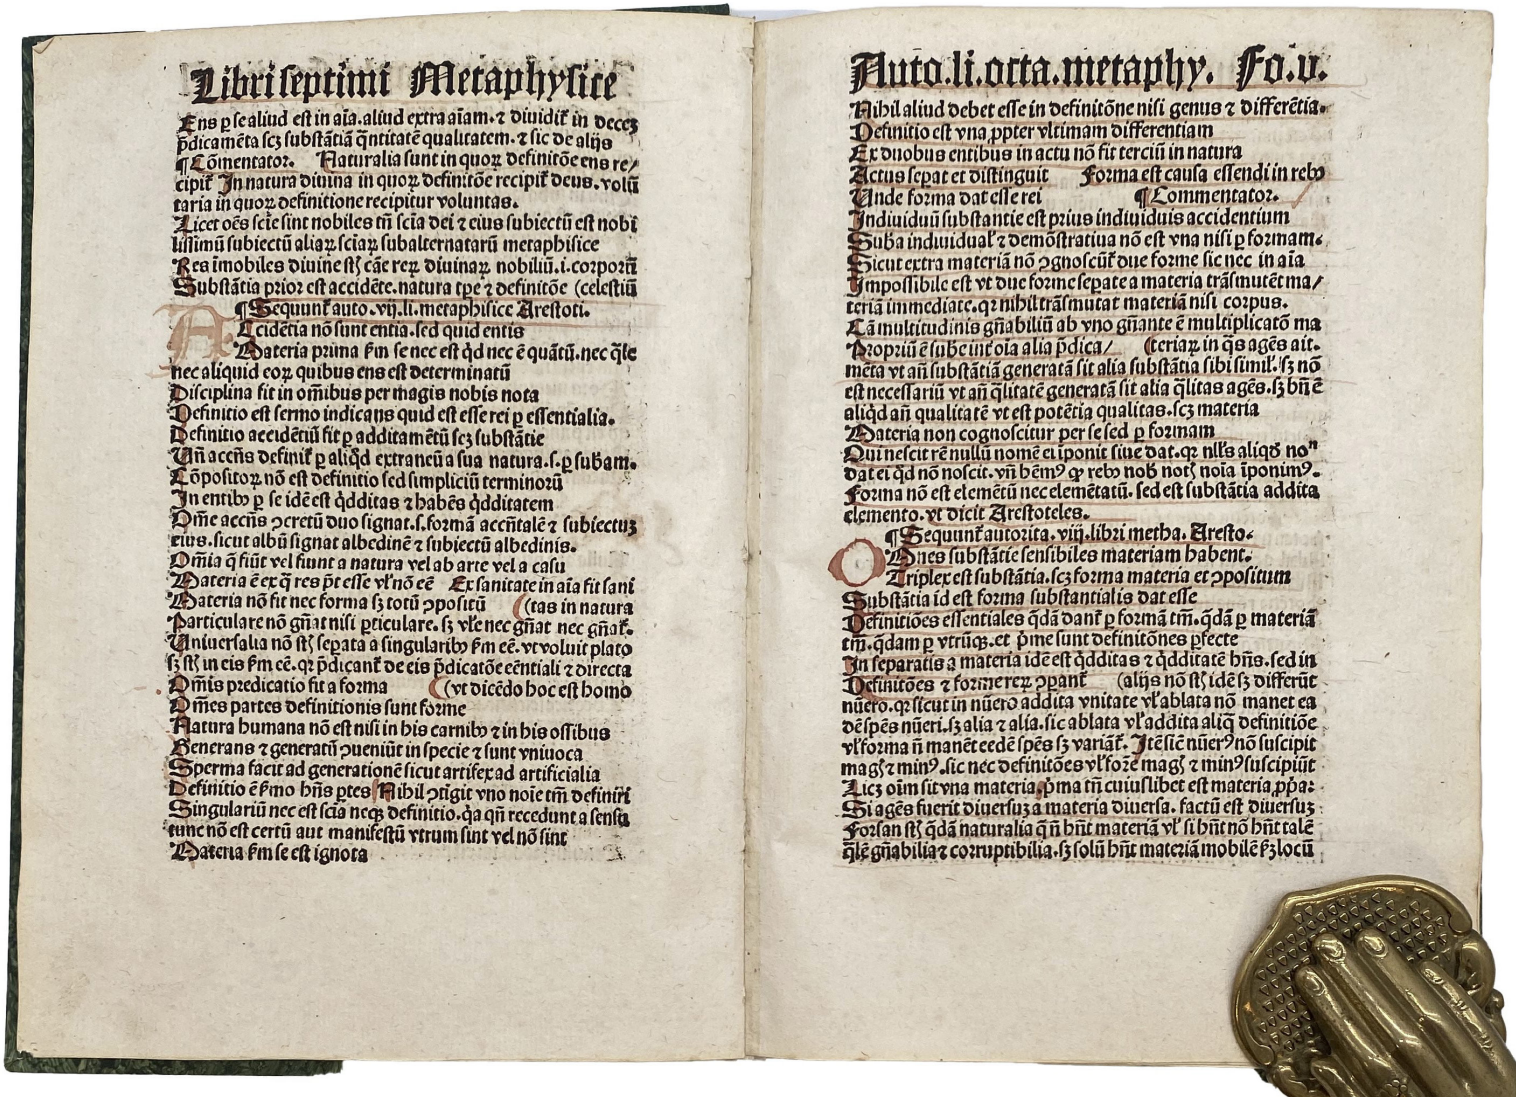 Libri septimi Metaphysice
Ens ꝑ se aliud est in aĩa. aliud extra aĩam. ⁊ diuidit᷑ in decẽ
p̃dicamẽta scꝫ substãtiã q̃ntitatẽ qualitatem. ⁊ sic de alijs
¶ Cõmentator. Naturalia sunt in quoꝝ definitõe ens re/
cipit᷑ In natura diuina in quoꝝ definitõe recipit᷑ deus. volũ
taria in quoꝝ definitione recipitur voluntas.
Licet oẽs scĩe sint nobiles tñ scĩa dei ⁊ eius subiectũ est nobi
lissimũ subiectũ aliaꝝ sciaꝝ subalternatarũ metaphisice
Res ĩmobiles diuine st̃ cãe reꝝ diuinaꝝ nobiliũ .i. corporũ
Substãtia prior est accidẽte. natura tꝑe ⁊ definitõe (celestiũ
¶ Sequunt᷑ auto. vij. li. metaphisice Arestoti.
A Ccidẽtia nõ sunt entia. sed quid entis
Materia prima ẜm se nec est q̇d nec ẽ quãtũ. nec q̃le
nec aliquid eoꝝ quibus ens est determinatũ
Disciplina fit in om̃ibus per magis nobis nota
Definitio est sermo indicans quid est esse rei ꝑ essentialia.
Definitio accidẽtiũ fit ꝑ additamẽtũ scꝫ substãtie
Vñ accñs definit᷑ ꝑ aliq̇d extraneũ a sua natura .s. ꝑ subam.
Cõpositoꝝ nõ est definitio sed simpliciũ terminorũ
In entibꝰ ꝑ se idẽ est q̇dditas ⁊ habẽs q̇dditatem
Om̃e accñs ꝯcretũ duo signat .s. formã accñtalẽ ⁊ subiectuꝫ
eius. sicut albũ signat albedinẽ ⁊ subiectũ albedinis.
Om̃ia q̃ fiũt vel fiunt a natura vel ab arte vel a casu
Materia ẽ ex q̃ res põt esse vl̕ nõ eẽ Ex sanitate in aĩa fit sani
Materia nõ fit nec forma sꝫ totũ ꝯpositũ (tas in natura
Particulare nõ gñat nisi ꝑticulare. sꝫ vl̕e nec gñat nec gñat᷑.
Vniuersalia nõ st̃ seꝑata a singularibꝰ ẜm eẽ. vt voluit plato
sꝫ st̃ in eis ẜm eẽ. qr p̃dicant᷑ de eis p̃dicatõe eẽntiali ⁊ directa
Om̃is predicatio fit a forma (vt dicẽdo hoc est homo
Om̃es partes definitionis sunt forme
Natura humana nõ est nisi in his carnibꝰ ⁊ in his ossibus
Generans ⁊ generatũ ꝯueniũt in specie ⁊ sunt vniuoca
Sperma facit ad generationẽ sicut artifex ad artificialia
Definitio ẽ ẜmo hñs ꝑtes Nihil ꝯtigit vno noĩe tm̃ definiri
Singulariũ nec est scĩa neqꝫ definitio. q̇a qñ recedunt a sensu
tunc nõ est certũ aut manifestũ vtrum sint vel nõ sint
Materia ẜm se est ignota
Auto. li. octa. metaphy. Fo. v.
Nihil aliud debet esse in definitõne nisi genus ⁊ differẽtia.
Definitio est vna ꝓpter vltimam differentiam
Ex duobus entibus in actu nõ fit terciũ in natura
Actus seꝑat et distinguit Forma est causa essendi in rebꝰ
Vnde forma dat esse rei ¶ Commentator.
Indiuiduũ substantie est prius indiuiduis accidentium
Suba indiuidual̕ ⁊ demõstratiua nõ est vna nisi ꝑ formam.
Sicut extra materiã nõ ꝯgnoscũt᷑ due forme sic nec in aĩa
Impossibile est vt due forme seꝑate a materia trãsmutẽt ma/
teriã immediate. qr nihil trãsmutat materiã nisi corpus.
Cã multitudinis gñabiliũ ab vno gñante ẽ multiplicatõ ma
Propriũ ẽ sube int̕ oĩa alia p̃dica/ (teriaꝝ in q̃s agẽs ait.
mẽta vt añ substãtiã generatã sit alia substãtia sibi simil̕. sꝫ nõ
est necessariũ vt añ q̃litatẽ generatã sit alia q̃litas agẽs. sꝫ bñ ẽ
aliq̇d añ qualitatẽ vt est potẽtia qualitas. scꝫ materia
Materia non cognoscitur per se sed ꝑ formam
Qui nescit rẽ nullũ nomẽ ei ĩponit siue dat. qr nll̕s aliqd̕ noⁿ
dat ei q̇d nõ noscit. vñ bẽmꝰ ꝙ rebꝰ nob̕ not̕ noĩa ĩponimꝰ.
Forma nõ est elemẽtũ nec elemẽtatũ. sed est substãtia addita
elemento. vt dicit Arestoteles.
¶ Sequunt᷑ autorita. viij. libri metha. Aresto.
O Mnes substãtie sensibiles materiam habent.
Triplex est substãtia. scꝫ forma materia et ꝯpositum
Substãtia id est forma substantialis dat esse
Definitiões essentiales q̇dã dant᷑ ꝑ formã tm̃. q̇dã ꝑ materiã
tm̃. q̇dam ꝑ vtrũqꝫ. et p̃me sunt definitõnes ꝑfecte
In separatis a materia idẽ est q̇dditas ⁊ q̇dditatẽ hñs. sed in
Definitões ⁊ forme reꝝ ꝯꝑant᷑ (alijs nõ st̃ idẽ sꝫ differũt
nũero. qr sicut in nũero addita vnitate vl̕ ablata nõ manet ea
dẽ spẽs nũeri. sꝫ alia ⁊ alia. sic ablata vl̕ addita aliq̃ definitiõe
vl̕ forma ñ manẽt eedẽ spẽs sꝫ variãt᷑. Itẽ sic nũerꝰ nõ suscipit
mag̕ ⁊ minꝰ. sic nec definitões vl̕ forme mag̕ ⁊ minꝰ suscipiũt
Licꝫ oĩm sit vna materia p̃ma tñ cuiuslibet est materia ꝓpa:
Si agẽs fuerit diuersuꝫ a materia diuersa. factũ est diuersuꝫ
Forsan st̃ q̇dã naturalia q̃ ñ hñt materiã vl̕ si hñt nõ hñt talẽ
q̃lẽ gñabilia ⁊ corruptibilia. sꝫ solũ hñt materiã mobilẽ ẜꝫ locũ